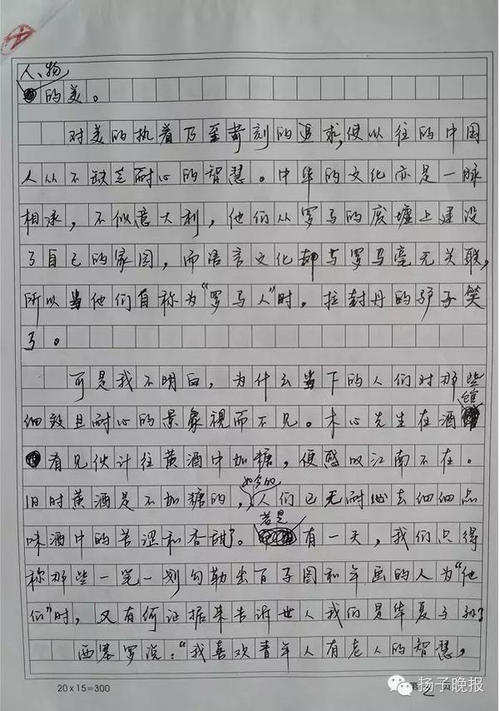 人、物
的美。
对美的执着乃至苛刻的追求，使以往的中国
人从不缺乏耐心的智慧。中华的文化亦是一脉
相承，不似意大利，他们从罗马的废墟上建设
了自己的家园，而语言文化却与罗马毫无关联，
所以当他们自称为“罗马人”时，拉封丹的驴子笑
了。
可是我不明白，为什么当下的人们对那些
细致且耐心的景象视而不见。木心先生在酒馆
看见伙计往黄酒中加糖，便感叹江南不在。
旧时黄酒是不加糖的，如今的人们已无耐心去细细品
味酒中的苦涩和香甜了。若是有一天，我们只得
称那些一笔一划勾勒出百子图和年画的人为“他
们”时，又有何证据来告诉世人我们是华夏子孙？
西塞罗说：“我喜欢青年人有老人的智慧，
20×15=300
扬子晚报